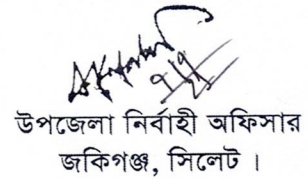 উপজেলা নির্বাহী অফিসার
জকিগঞ্জ, সিলেট ।